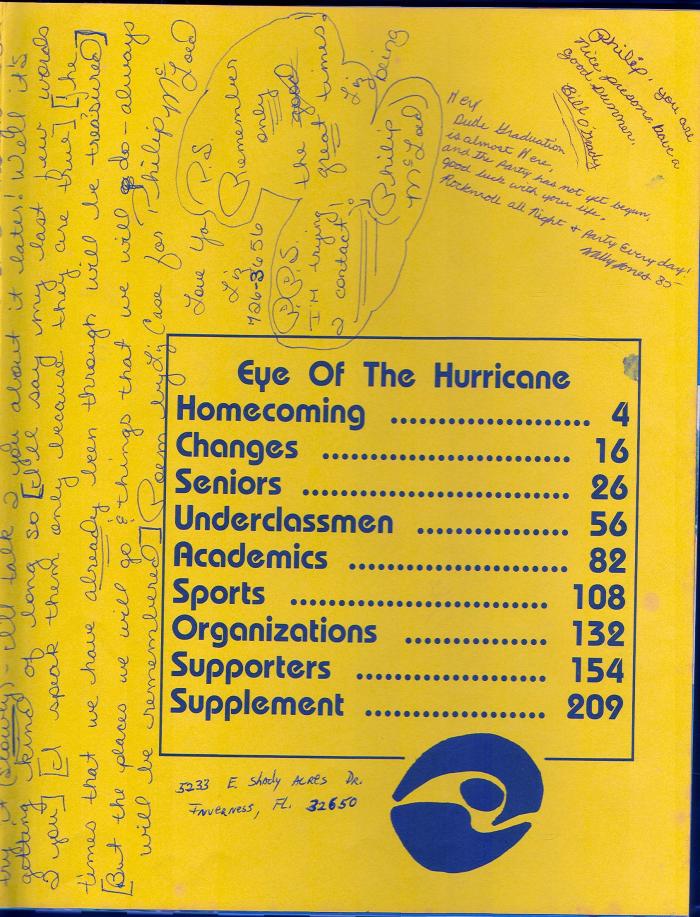 try it (slowly) - I'll talk 2 you about it later! Well it's
getting kind of long so [I'll say my last few words
2 you] [I speak them only because they are true] [the
times that we have already been through will be treasured]
[But the places we will go & things that we will do - always
will be remembered] (Poem by Liz Case for Philip McLoed
Love You
Liz
726-3656
P.S.
Remember
only
the good
great times!
Liz
P.P.S.
I'm trying
2 contact!
Philip
McLoed
being
Hey!
Dude Graduation
is almost Here,
and the Party has not yet begun,
good luck with your life,
Rocknroll all Night & Party Everyday!
Willy Jones 85
Philip, you are
nice person, have a
good summer.
Bill O'Grady
Eye Of The Hurricane
Homecoming .................... 4
Changes ......................... 16
Seniors ........................... 26
Underclassmen ............... 56
Academics ...................... 82
Sports .......................... 108
Organizations .............. 132
Supporters ................... 154
Supplement .................. 209
5233 E. Shady Acres Dr.
Inverness, FL. 32650